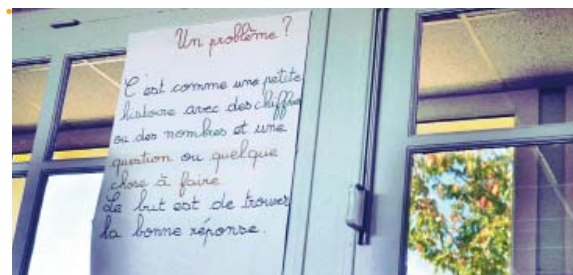 Un problème ?
C'est comme une petite
histoire avec des chiffres
ou des nombres et une
question ou quelque
chose à faire
Le but est de trouver
la bonne réponse.